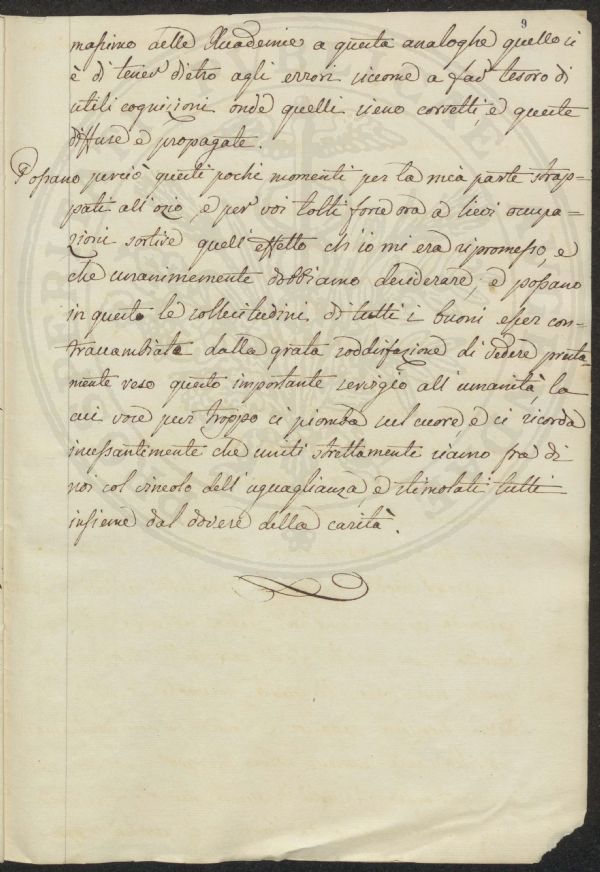 9
massimo delle Accademie a questa analoghe quello si
è di tener dietro agli errori siccome a far tesoro di
utili cognizioni onde quelli sieno corretti, e queste
diffuse e propagate.
Possano perciò questi pochi momenti per la mia parte strap=
pati all'ozio, e per voi tolti fors'ora a lievi occupa=
zioni sortire quell'effetto ch'io mi era ripromesso, e
che unanimemente dobbiamo desiderare, e possano
in questo le sollecitudini di tutti i buoni esser con=
traccambiate dalla grata soddisfazione di vedere pronta=
mente reso questo importante servigio all'umanità, la
cui voce pur troppo ci piomba sul cuore e ci ricorda
incessantemente che uniti strettamente siamo fra di
noi col vincolo dell'uguaglianza, e stimolati tutti
insieme dal dovere della carità.